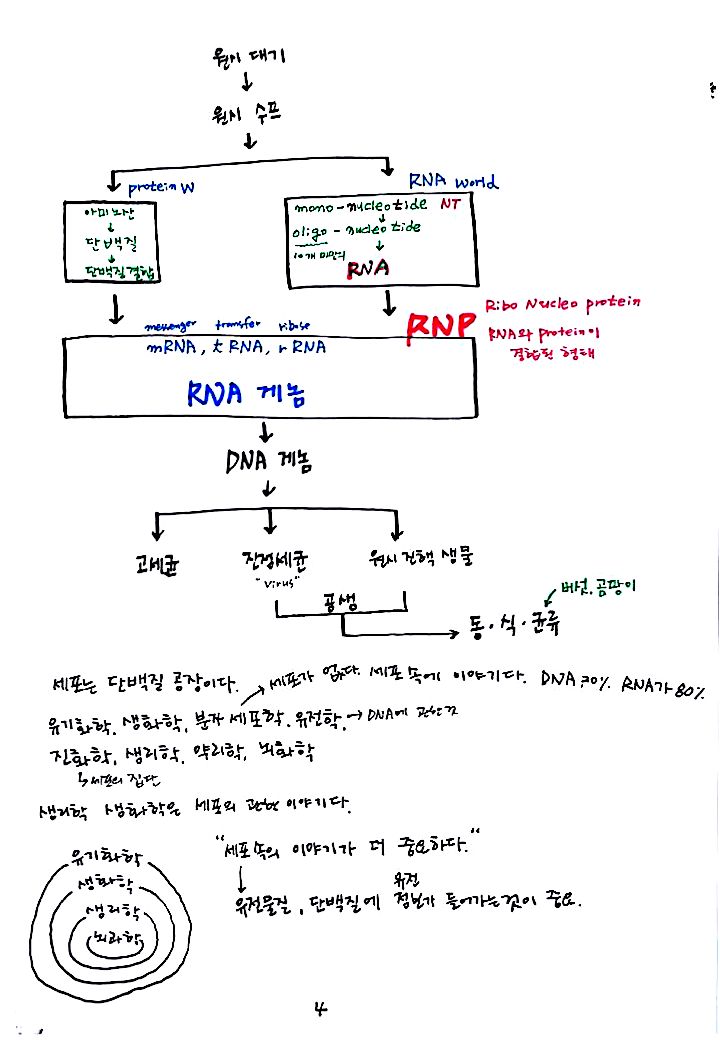 원시 대기
원시 수프
protein W
RNA world
아미노산
단백질
단백질결합
mono-nucleotide NT
oligo-nucleotide
10개 미만의
RNA
Ribo Nucleo protein
RNP
RNA와 protein이
결합된 형태
messenger transfer ribose
mRNA, t RNA, r RNA
RNA 게놈
DNA 게놈
고세균 진정세균 원시 진핵 생물
"virus"
공생
버섯. 곰팡이
동·식·균류
세포는 단백질 공장이다. 세포가 없다. 세포 속에 이야기다. DNA 20% RNA가 80%
유기화학, 생화학, 분자 세포학, 유전학. → DNA에 관한 것
진화학, 생리학, 약리학, 뇌화학
↳ 세포의 집단
생리학 생화학은 세포의 관한 이야기다.
유기화학
생화학
생리학
뇌과학
"세포 속의 이야기가 더 중요하다."
유전
유전물질, 단백질에 정보가 들어가는것이 중요.
4